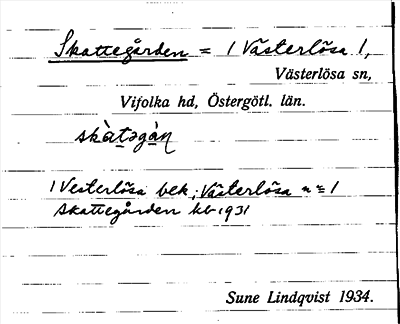 Skattegården = 1 Västerlösa 1,
Västerlösa sn,
Vifolka hd, Östergötl. län.
skàt̠əgà̠ṇ
1 Vesterlösa bek; Västerlösa n = 1
Skattegården kb 1931
Sune Lindqvist 1934.